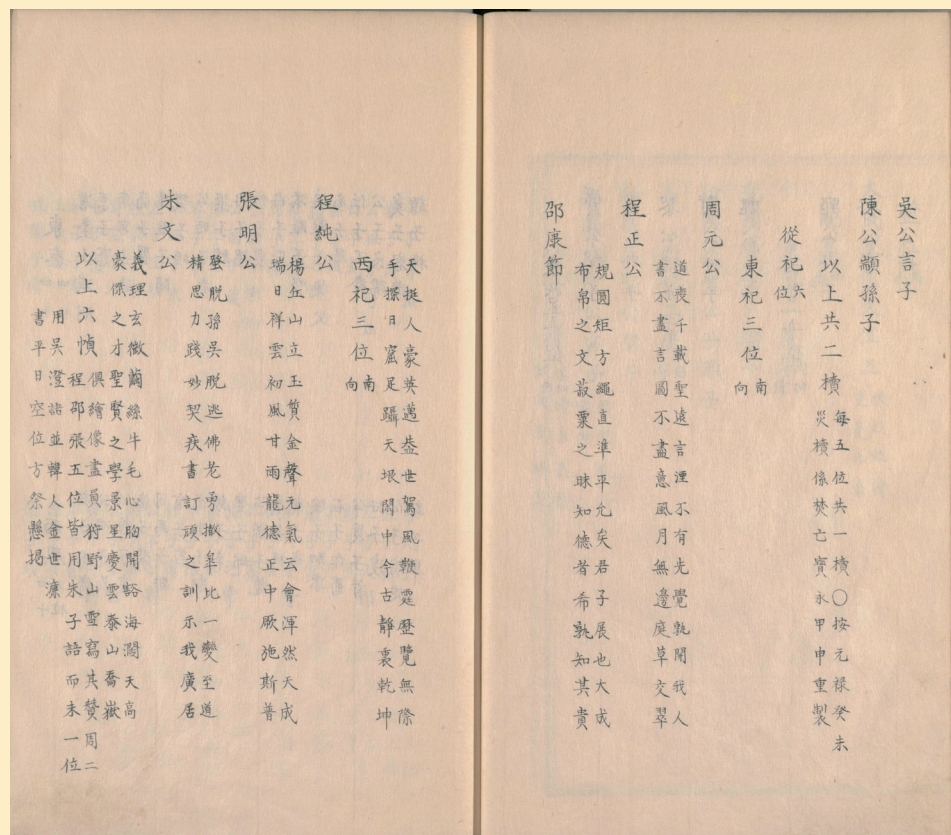 吳公言子
陳公顓孫子
以上共二櫝
每五位共一櫝〇按元禄癸未
災櫝係焚亡寳永甲申重製
從祀
六
位
東祀三位
南
向
周元公
道喪千載聖遠言湮不有先覺孰開我人
書不盡言圖不盡意風月無邊庭草交翠
程正公
規圓矩方繩直準平允矣君子展也大成
布帛之文菽粟之味知德者希孰知其貴
邵康節
天挺人豪英邁盖世駕風鞭霆歷覽無際
手探月窟足躡天根閒中今古靜裏乾坤
西祀三位
南
向
程純公
揚丘山立玉質金聲元氣云會渾然天成
瑞日祥雲初風甘雨龍德正中厥施斯普
張明公
蚤脱孫吳脱逃佛老勇撤皐比一變至道
精思力踐妙契疾書訂頑之訓示我廣居
朱文公
義理玄微繭絲牛毛心胸開豁海濶天高
豪傑之才聖賢之學景星慶雲泰山喬嶽
以上六幀
俱繪像盡員狩野山雪寫其賛周二
程邵張五位皆用朱子語而朱一位
用吳澄語並韓人金世濂
書平日空位方祭懸揭